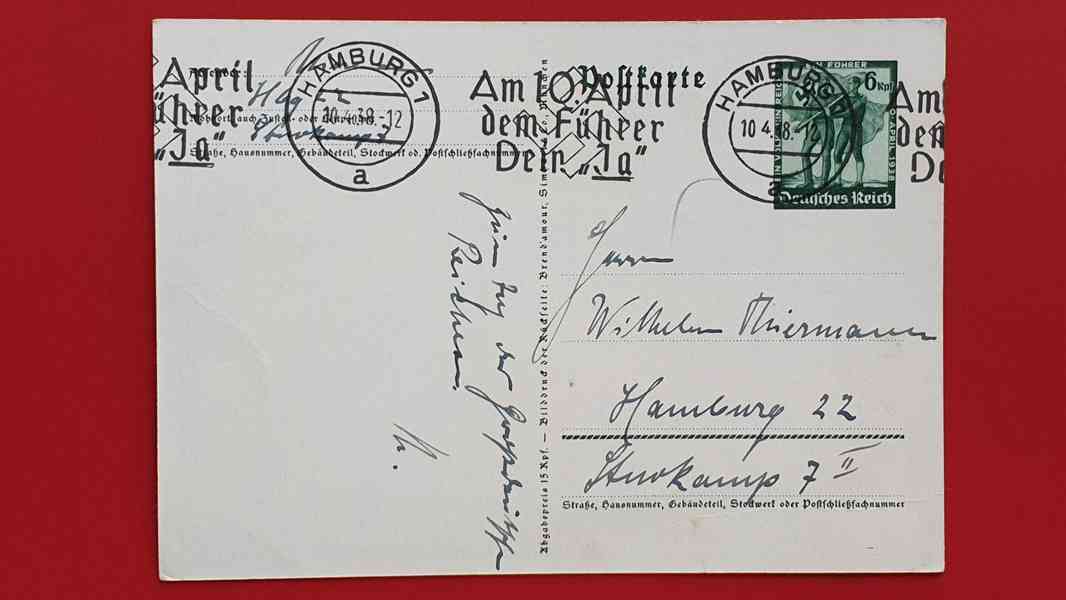 Am 10. April
dem Führer
Dein „Ja“
HAMBURG 1
10.4.38.-12
a
Absender:
Hbg 22
Wohnort, auch Zustell- oder
7
Straße, Hausnummer, Gebäudeteil, Stockwerk od. Postschließfachnummer
Postkarte
Am 10. April
dem Führer
Dein „Ja“
HAMBURG 1
10.4.38.-12
a
Am
dem
De
EIN VOLK EIN REICH EIN FÜHRER
10. APRIL 1938
6 Rpf
Deutsches Reich
Herrn
Wilhelm Thiermann
Hamburg 22
7 II
Straße, Hausnummer, Gebäudeteil, Stockwerk oder Postschließfachnummer
Abgabepreis 15 Rpf. — Bilddruck der Rückseite: Brend'amour, Simhart & Co., München
Zum Tag der Großdeutschen